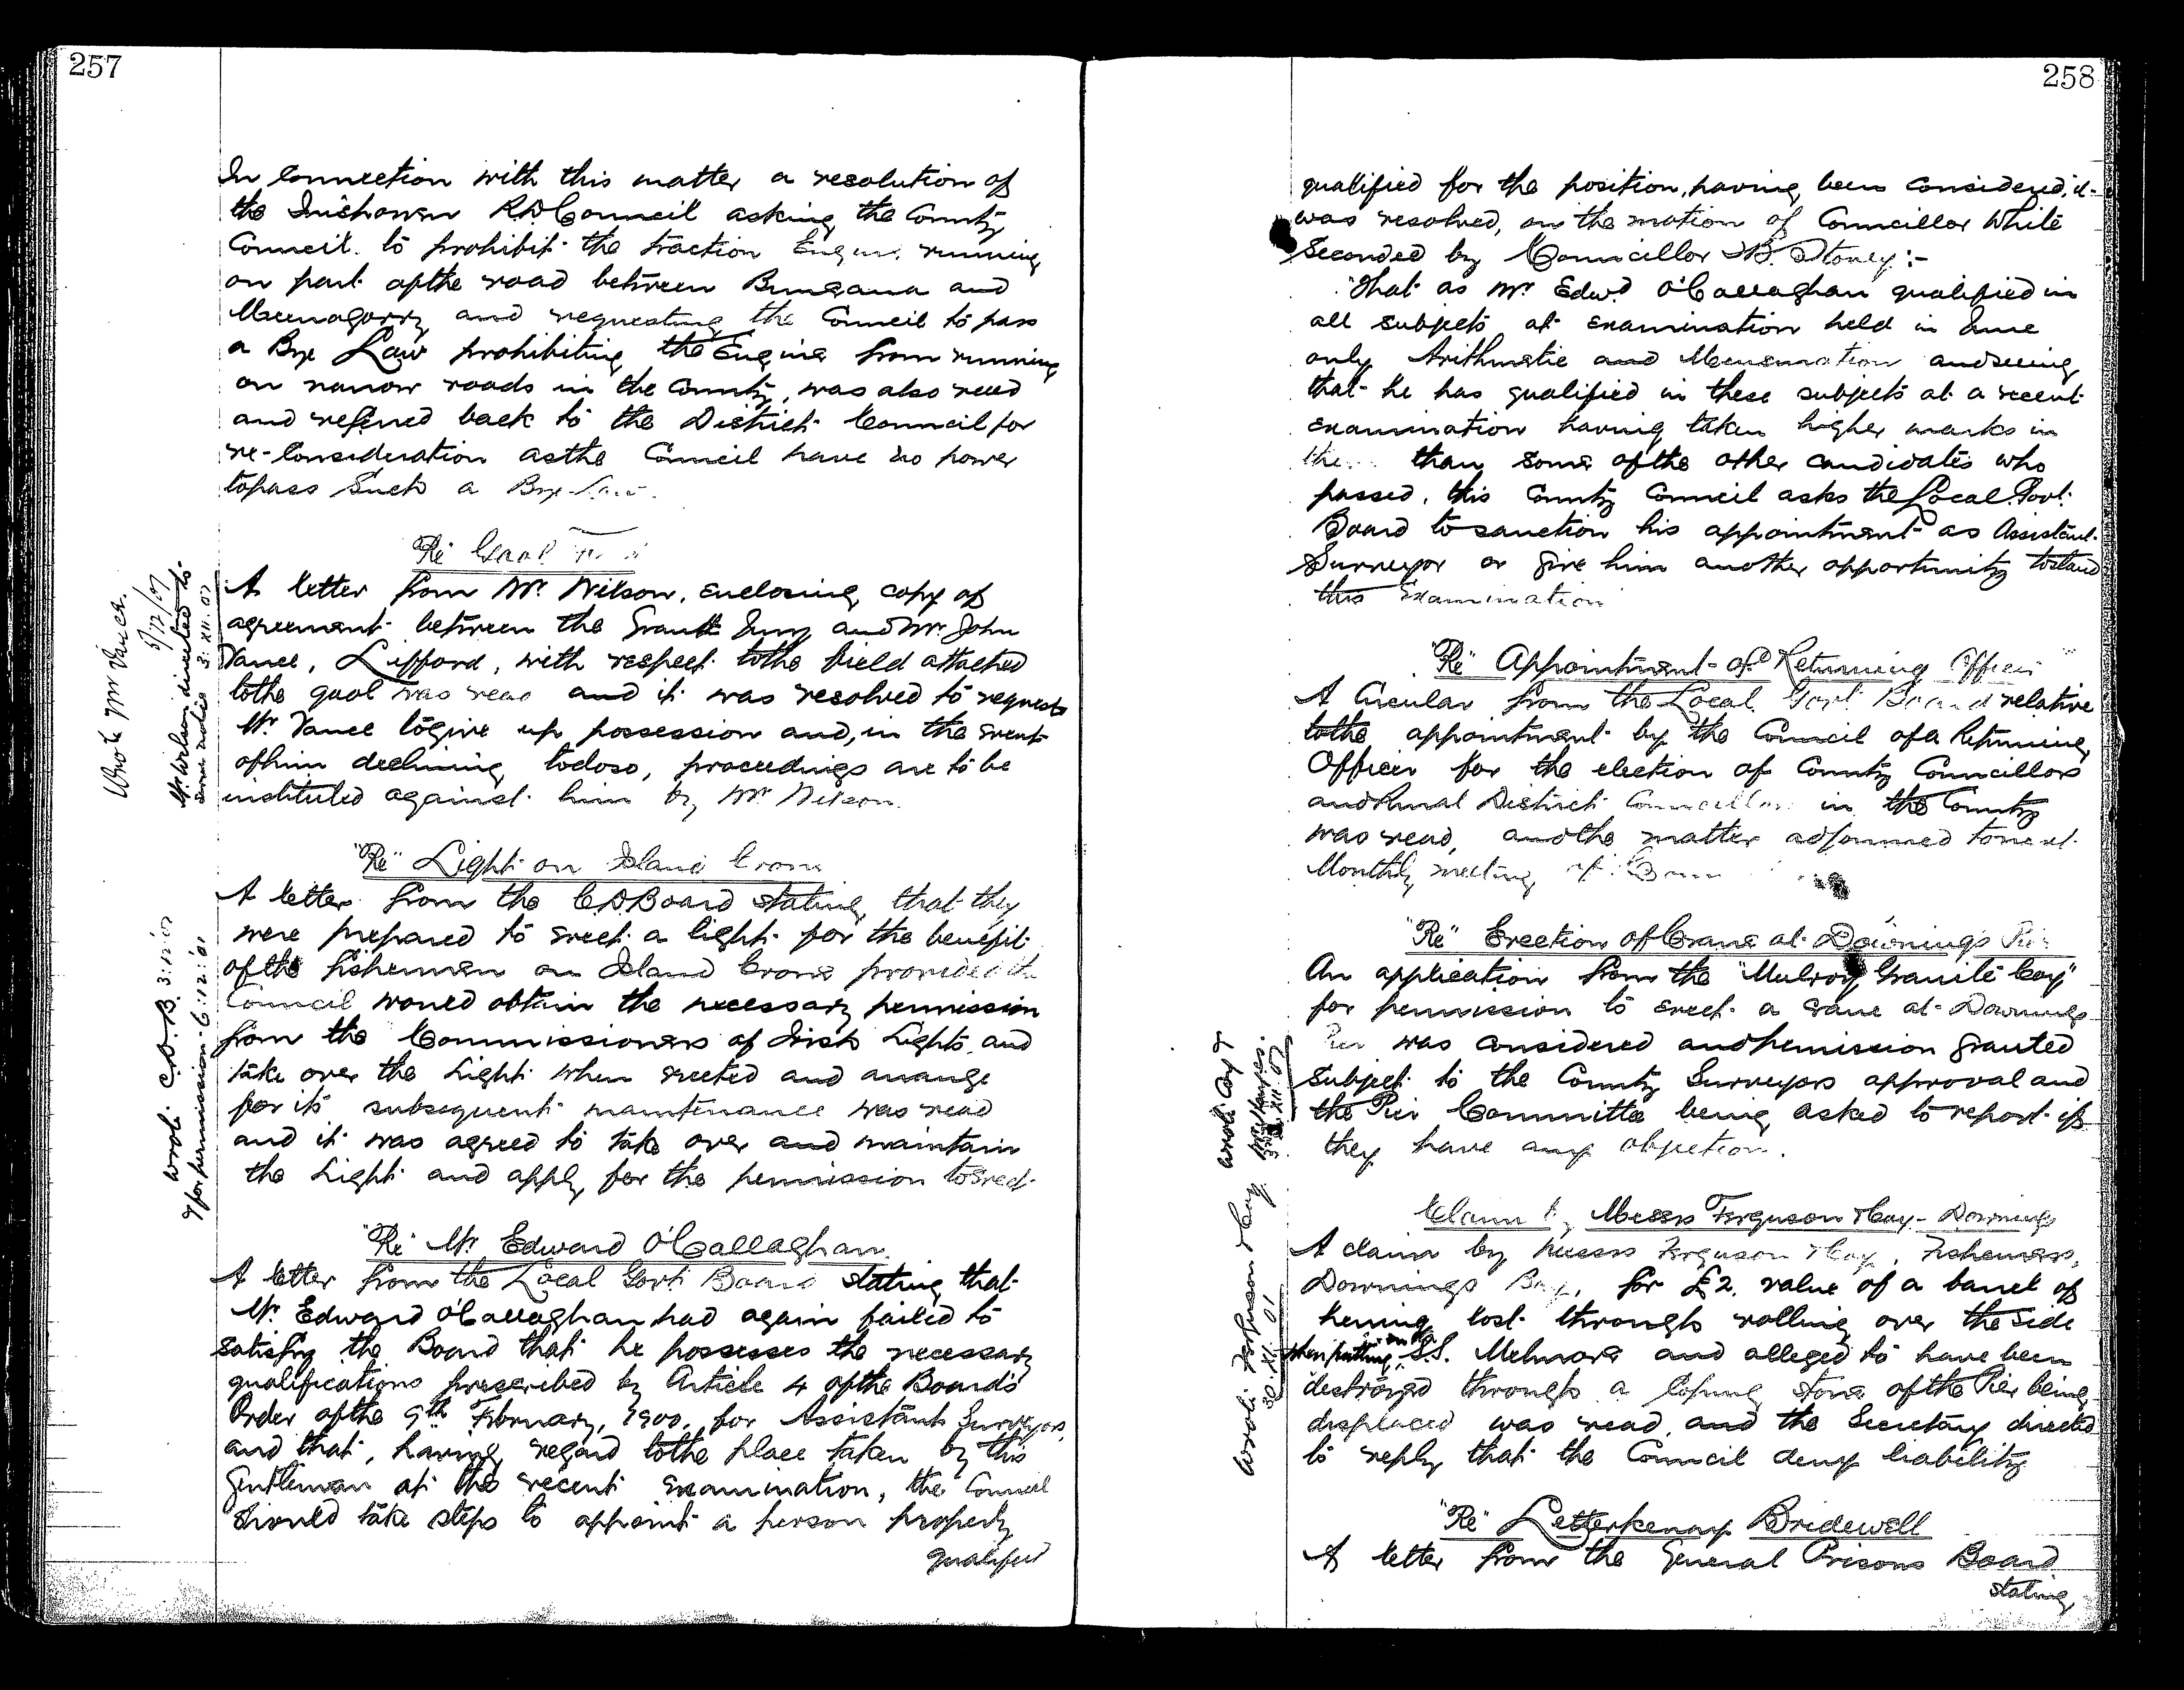 257
In Connection with this matter a resolution of
the Inishowen R.D. Council asking the County
Council to prohibit the traction Engine running
on part of the road between Bunsana and
Meenagorry and requesting the Council to pass
a Bye Law prohibiting the Engine from running
on narrow roads in the County, was also read
and referred back to the District Council for
re-Consideration as the Council have no power
to pass Such a Bye-Law.
"Re" Gaol
A letter from Mr. Wilson, enclosing copy of
agreement between the Grand Jury and Mr. John
Vance, Lifford, with respect to the field attached
to the gaol was read and it was resolved to request
Mr. Vance to give up possession and, in the event
of him declining to do so, proceedings are to be
instituted against him by Mr. Wilson.
Wrote Mr Vance.
3/12/01
Mr. Wilson directed to
serve notice 3: XII: 01
"Re" Light on Island Crone
A letter from the C.D. Board stating that they
were prepared to erect a light for the benefit
of the fishermen on Island Crone provided the
Council would obtain the necessary permission
from the Commissioners of Irish Lights, and
take over the Light when erected and arrange
for its subsequent maintenance was read
and it was agreed to take over and maintain
the Light and apply for the permission to erect
Wrote C.D.B. 3:12:01
& for permission 6:12:01
"Re" Mr. Edward O'Callaghan.
A letter from the Local Govt. Board stating that
Mr. Edward O'Callaghan had again failed to
satisfy the Board that he possesses the necessary
qualifications prescribed by Article 4 of the Board's
Order of the 9th February, 1900, for Assistant Surveyors,
and that, having regard to the place taken by this
Gentleman at the recent examination, the Council
should take steps to appoint a person properly
qualified
258
qualified for the position, having been considered, it
was resolved, on the motion of Councillor White
Seconded by Councillor B. Stoney:-
"That as Mr Edwd. O'Callaghan qualified in
all subjects at examination held in June
only Arithmetic and Mensuration and seeing
that he has qualified in these subjects at a recent
examination having taken higher marks in
them than some of the other candidates who
passed, this County Council asks the Local Govt.
Board to sanction his appointment as Assistant
Surveyor or give him another opportunity to stand
this Examination
"Re" Appointment of Returning Officer
A Circular from the Local Govt Board relative
to the appointment by the Council of a Returning
Officer for the election of County Councillors
and Rural District Councillors in the County
was read, and the matter adjourned to next
Monthly meeting of
"Re" Erection of Crane at Downings Pier
An application from the "Mulroy Granite Coy"
for permission to erect a crane at Downings
Pier was considered and permission granted
subject to the County Surveyors approval and
the Pier Committee being asked to report if
they have any objection.
Wrote Coy &
3: XII: 01
Claim by Messrs Ferguson & Coy - Downings
A claim by Messrs Ferguson & Coy, Fishcurers,
Downings Bay, for £2, value of a barrel of
herring lost through rolling over the side
when putting on the S.S. Melmore and alleged to have been
destroyed through a Coping stone of the Pier being
displaced was read, and the Secretary directed
to reply that the Council deny liability
Wrote Ferguson & Coy
30. XI. 01
"Re" Letterkenny Bridewell
A letter from the General Prisons Board
stating